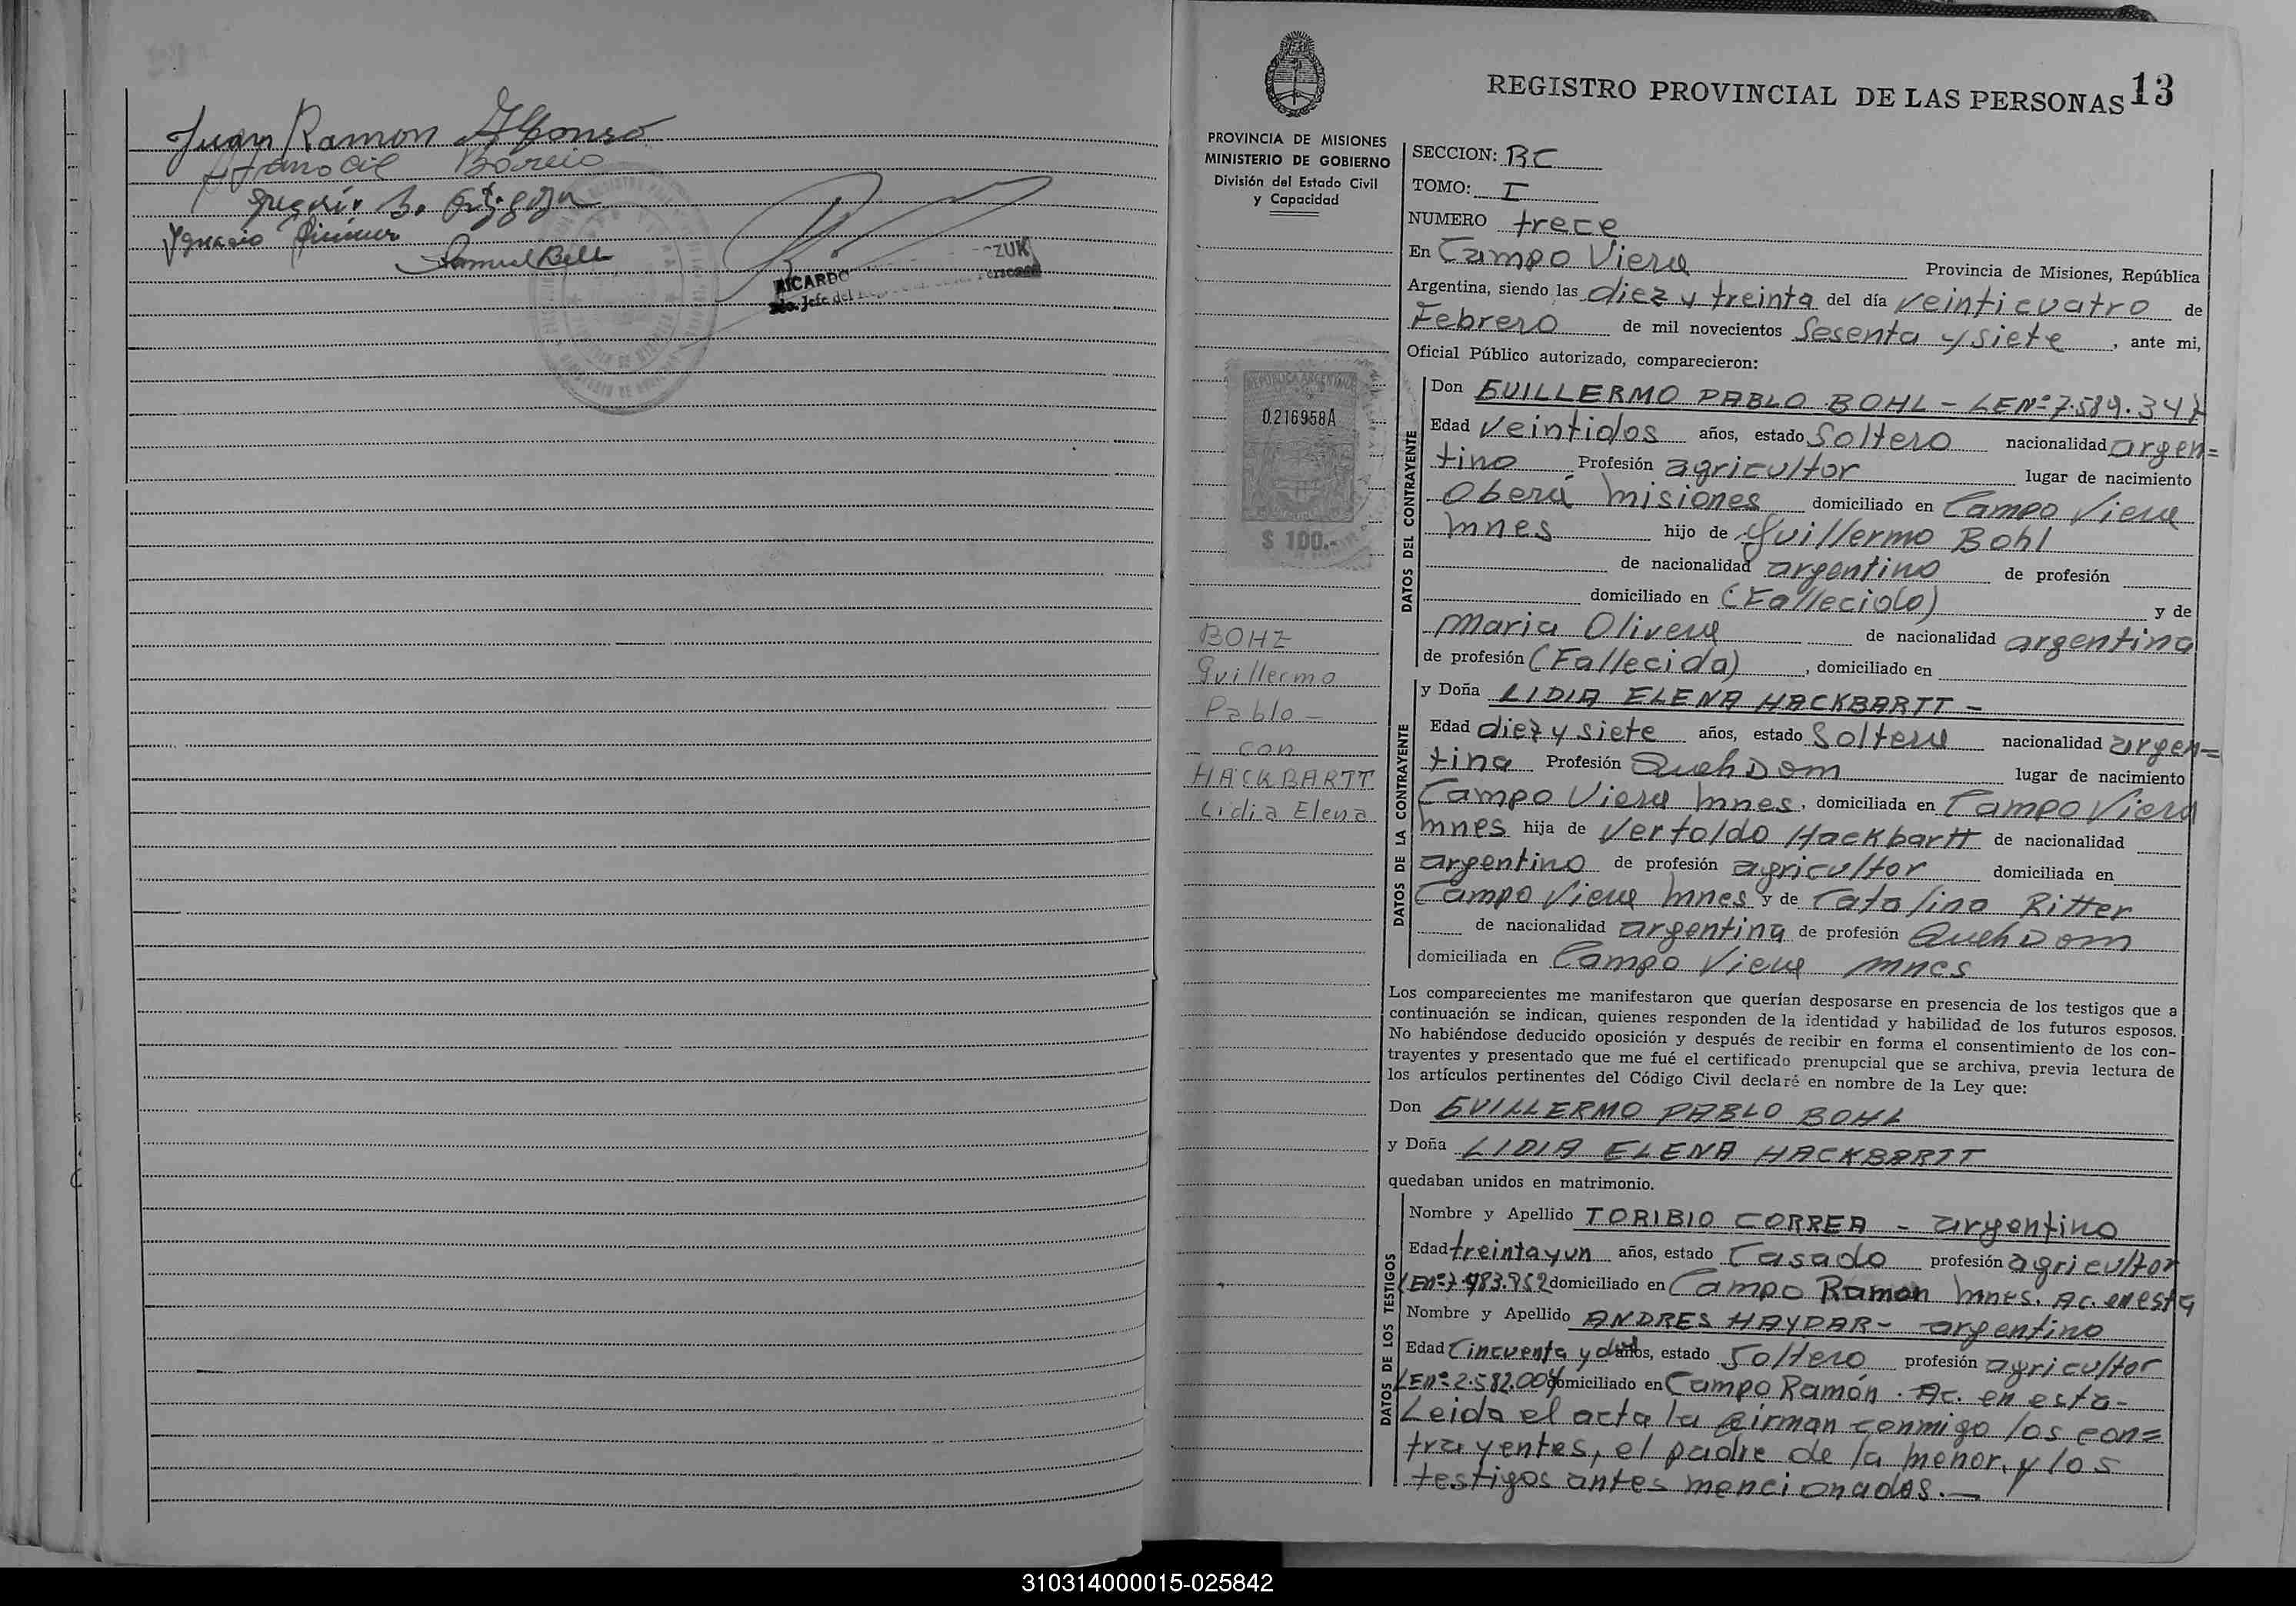 Juan Ramon Alfonso
Ignacio
Samuel Bell
ZUK
RICARDO
REGISTRO PROVINCIAL DE LAS PERSONAS 13
PROVINCIA DE MISIONES
MINISTERIO DE GOBIERNO
División del Estado Civil
y Capacidad
0.216958A
$ 100.-
BOHL
Guillermo
Pablo -
- con
HACKBARTT
Lidia Elena
SECCION: RC
TOMO: I
NUMERO trece
En Campo Viera Provincia de Misiones, República
Argentina, siendo las diez y treinta del día veinticuatro de
Febrero de mil novecientos Sesenta y siete, ante mi,
Oficial Público autorizado, comparecieron:
DATOS DEL CONTRAYENTE
Don GUILLERMO PABLO BOHL - LENº 7.589.347
Edad veintidos años, estado Soltero nacionalidad argen=
tino Profesión agricultor lugar de nacimiento
Oberá Misiones domiciliado en Campo Viera
Mnes hijo de Guillermo Bohl
de nacionalidad argentino de profesión
domiciliado en (Fallecido) y de
Maria Olivera de nacionalidad argentina
de profesión (Fallecida), domiciliado en
DATOS DE LA CONTRAYENTE
y Doña LIDIA ELENA HACKBARTT -
Edad diez y siete años, estado Soltera nacionalidad argen=
tina Profesión Queh Dom lugar de nacimiento
Campo Viera Mnes, domiciliada en Campo Viera
Mnes hija de Vertoldo Hackbartt de nacionalidad
argentino de profesión agricultor domiciliada en
Campo Viera Mnes y de Catalina Ritter
de nacionalidad argentina de profesión Queh Dom
domiciliada en Campo Viera Mnes
Los comparecientes me manifestaron que querían desposarse en presencia de los testigos que a
continuación se indican, quienes responden de la identidad y habilidad de los futuros esposos.
No habiéndose deducido oposición y después de recibir en forma el consentimiento de los con-
trayentes y presentado que me fué el certificado prenupcial que se archiva, previa lectura de
los artículos pertinentes del Código Civil declaré en nombre de la Ley que:
Don GUILLERMO PABLO BOHL
y Doña LIDIA ELENA HACKBARTT
quedaban unidos en matrimonio.
DATOS DE LOS TESTIGOS
Nombre y Apellido TORIBIO CORREA - argentino
Edad treinta y un años, estado Casado profesión agricultor
domiciliado en Campo Ramon Mnes. Ac. en esta
Nombre y Apellido ANDRES HAYDAR - argentino
Edad Cincuenta y dos años, estado Soltero profesión agricultor
LENº 2.582.004 domiciliado en Campo Ramón. Ac. en esta-
Leida el acta la firman conmigo los con=
trayentes, el padre de la menor, y los
testigos antes mencionados.-
310314000015-025842